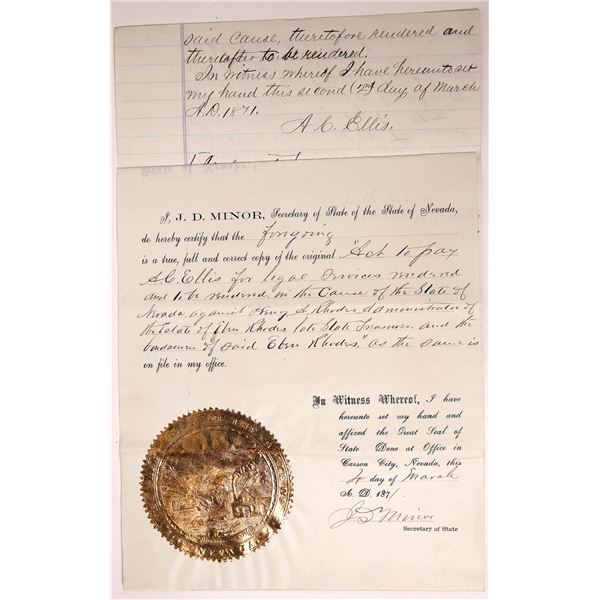 said cause, theretofore rendered and
thereafter to be rendered.
In witness whereof I have hereunto set
my hand this second (2nd) day of March
A.D. 1871.
A. C. Ellis.
I, J. D. MINOR, Secretary of State of the State of Nevada,
do hereby certify that the foregoing
is a true, full and correct copy of the original "Act to pay
A C. Ellis for legal services rendered
and to be rendered, in the Cause of the State of
Nevada against Henry A. Rhodes Administrator of
the Estate of Eben Rhodes late State Treasurer and the
bondsmen of said Eben Rhodes," as the same is
on file in my office.
In Witness Whereof, I have
hereunto set my hand and
affixed the Great Seal of
State Done at Office in
Carson City, Nevada, this
day of March
A. D. 1871.
J D Minor
Secretary of State